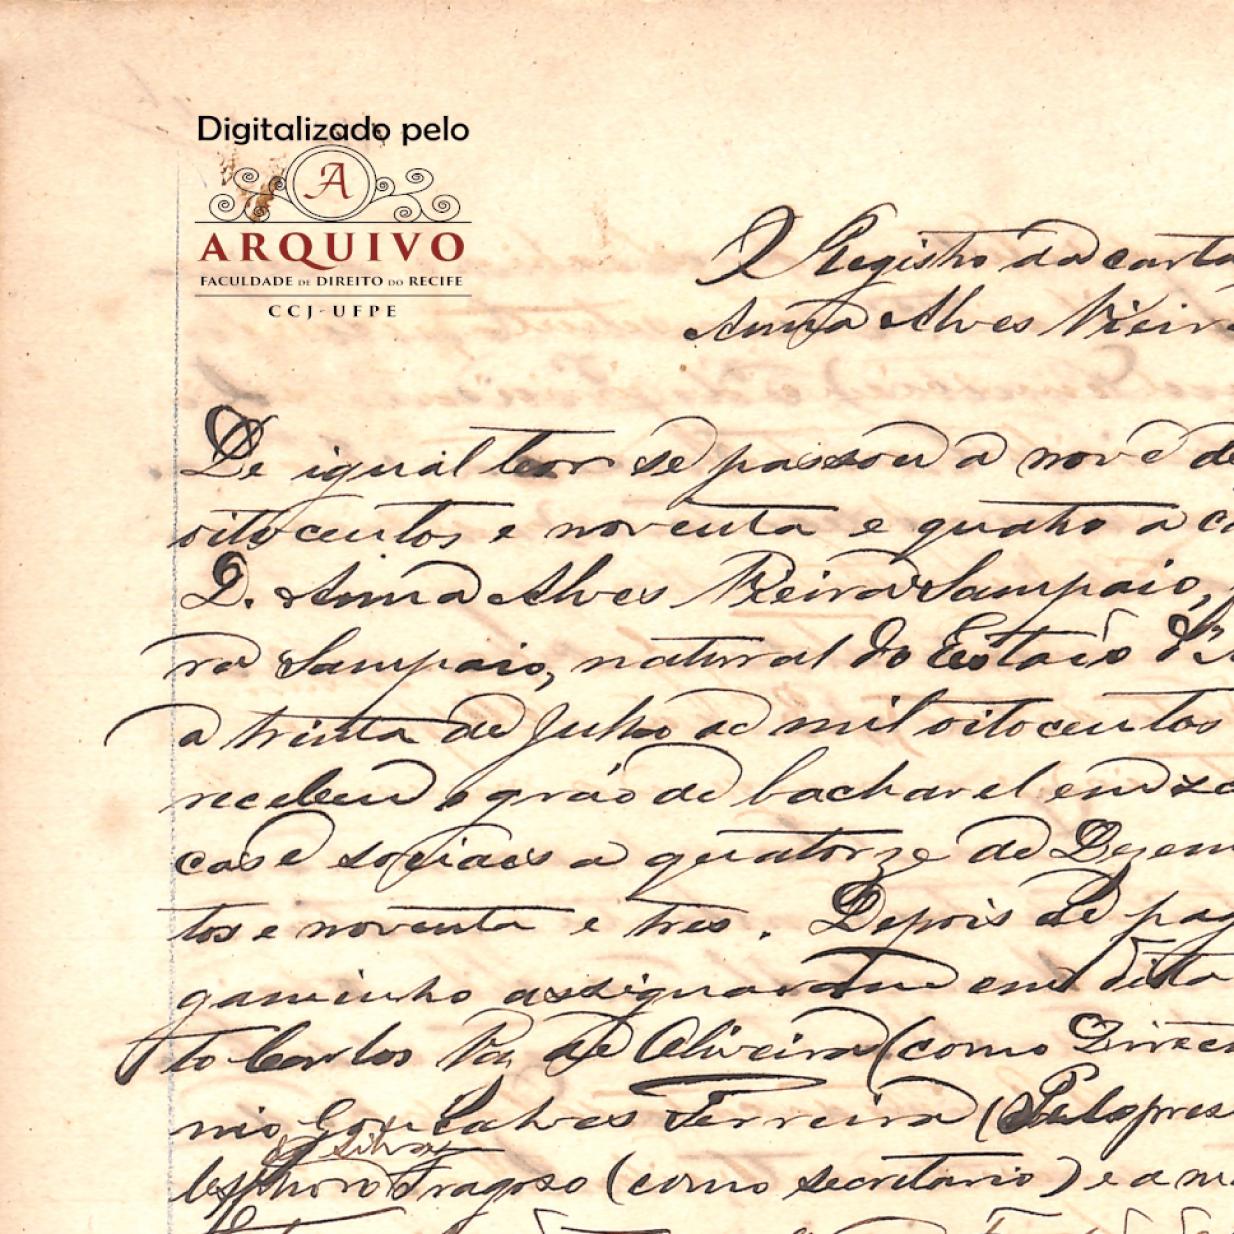 Digitalizado pelo
A
ARQUIVO
FACULDADE DE DIREITO DO RECIFE
CCJ-UFPE
Registro da carta
Anna Alves Vieir
De igual teor se passou a nove de
oitocentos e noventa e quatro a c
D. Anna Alves Vieira Sampaio,
ra Sampaio, natural do Estado d'
a trinta de Julho de mil oitocentos
recebeu o gráo de bacharel em sc
cas e sociaes a quatorze de Dezem
tos e noventa e tres. Depois de pag
gaminho assignaram em dita
to Carlos Vaz de Oliveira (como Direc
nio Gonçalves Ferreira (Pelo pres
da Silva
lesphoro Fragoso (como secretario) e a m